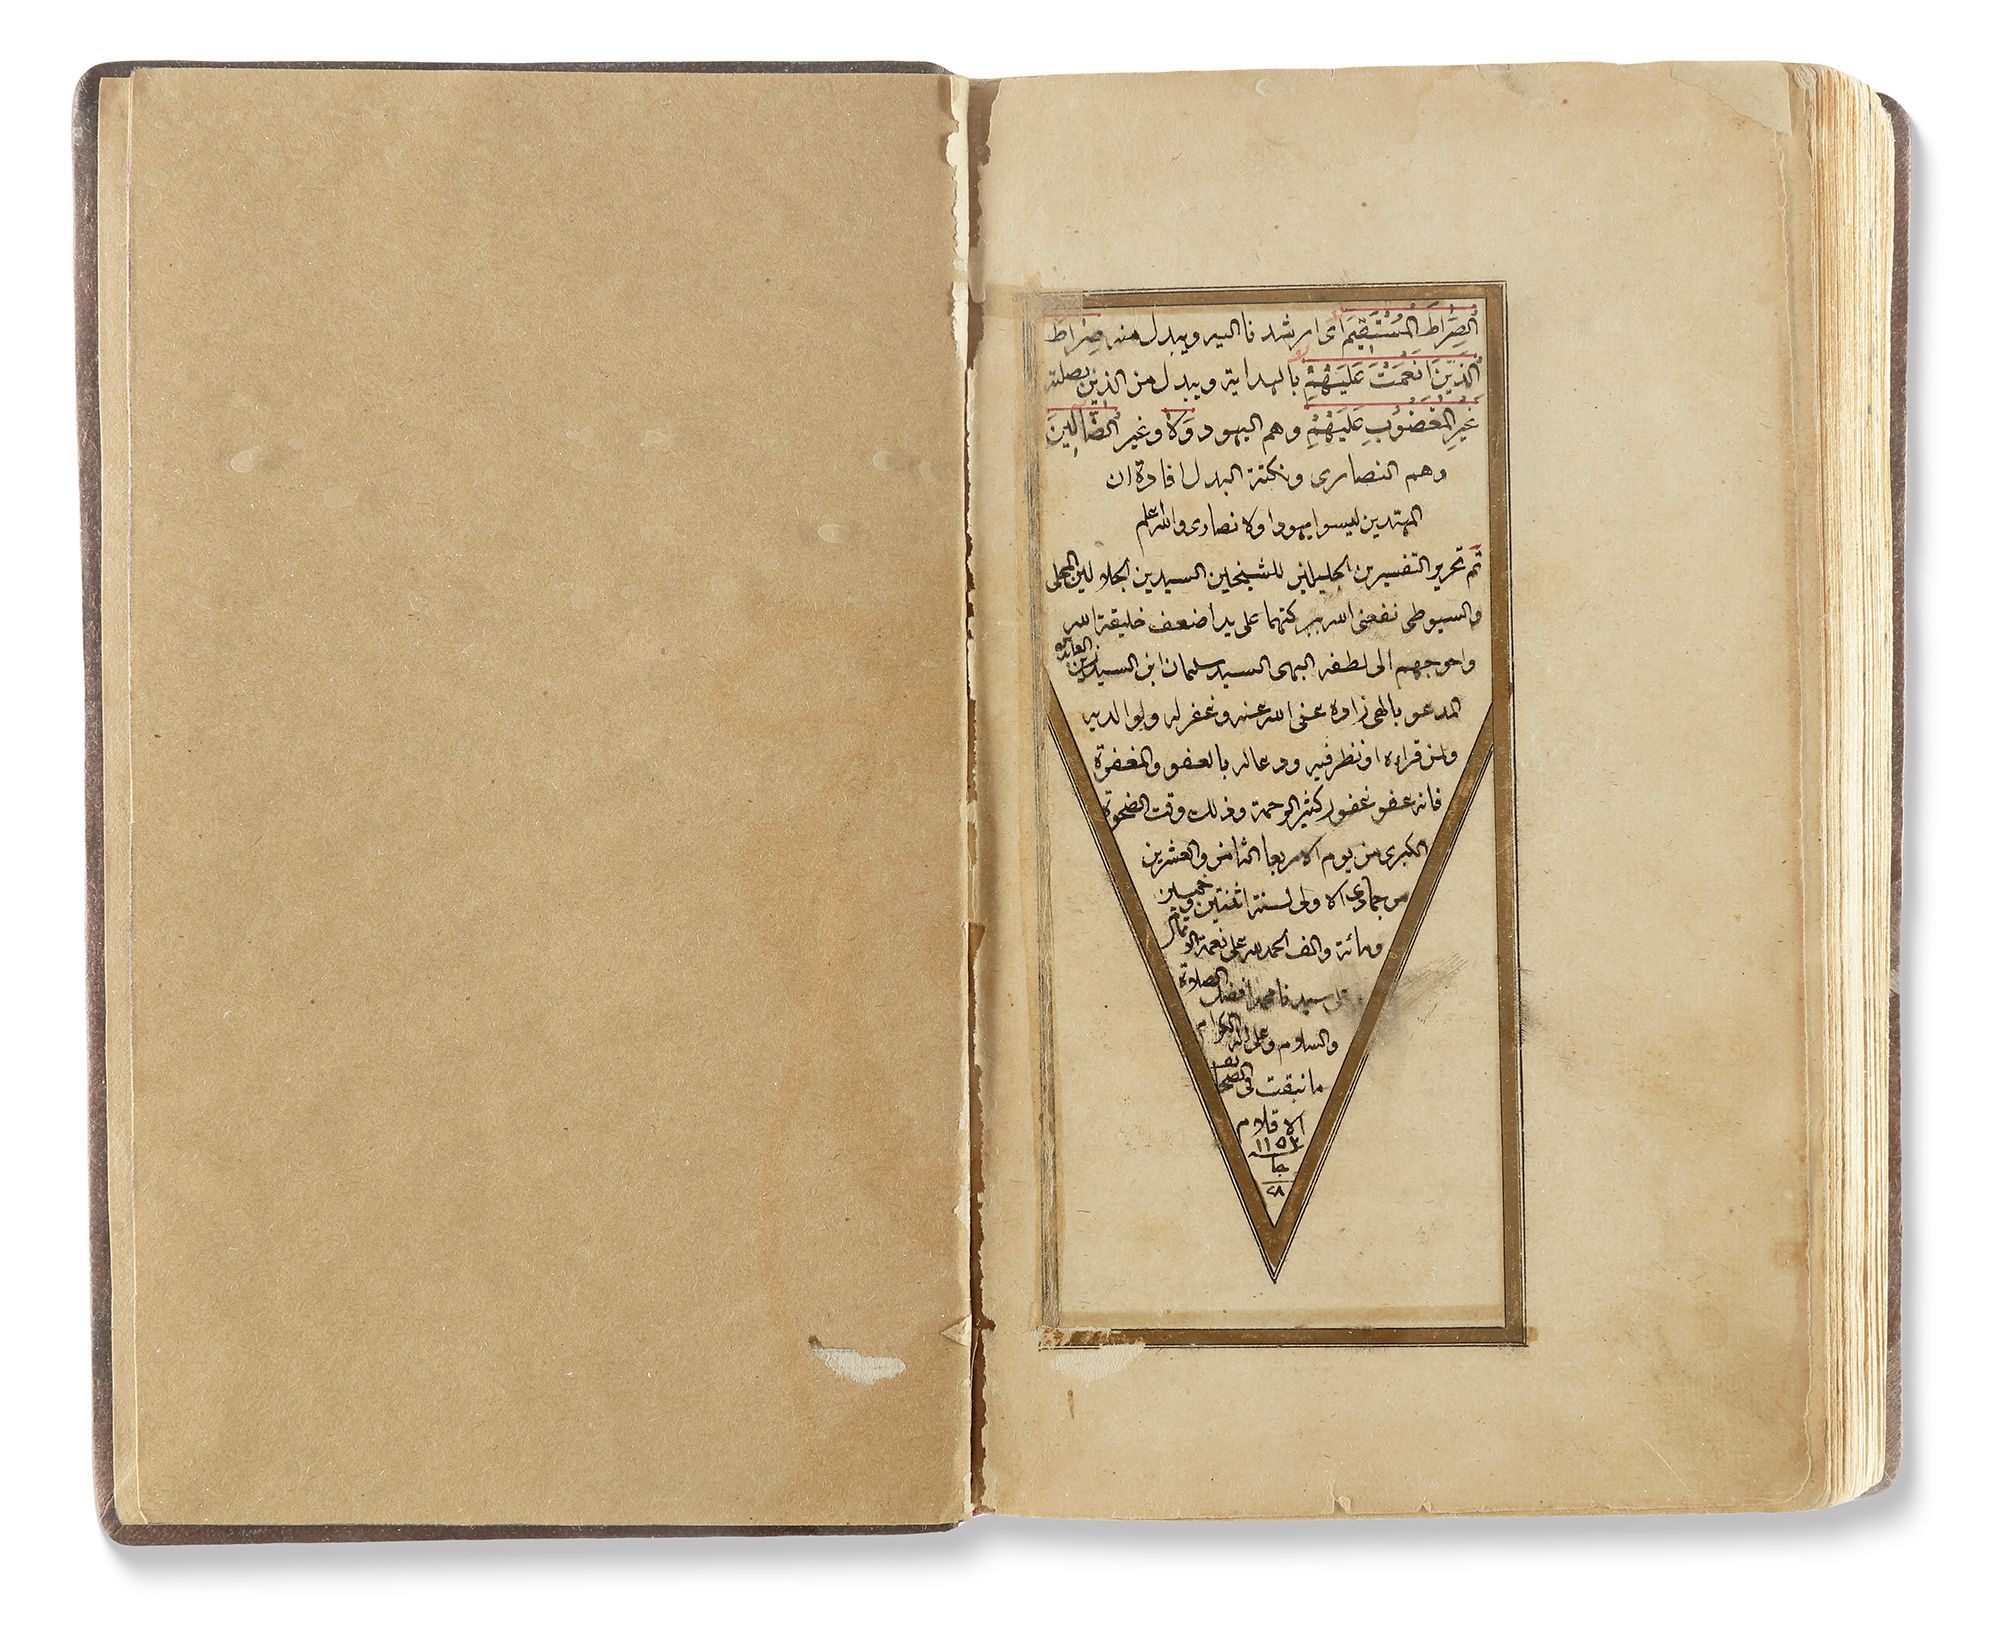 الصِّرَاطَ الْمُسْتَقِيمَ اى ارشدنا اليه ويبدل منه صِرَاطَ
الَّذِينَ اَنْعَمْتَ عَلَيْهِمْ بالهداية ويبدل من الذين بصلته
غَيْرِ الْمَغْضُوبِ عَلَيْهِمْ وهم اليهود وَلَا وغير الضَّالِّينَ
وهم النصارى ونكتة البدل افادة ان
المهتدين ليسوا يهودا ولا نصارى والله علم
تم تحرير التفسيرين الجليلين للشيخين السيدين الجلالين المحلى
والسيوطى نفعنى الله ببركتهما على يد اضعف خليقة الله
واحوجهم الى لطفه البهى السيد سلمان ابن السيد زين العابدين
المدعو بالهى زاده عفى الله عنه وغفر له ولوالديه
ولمن قراءه او نظر فيه ودعا له بالعفو والمغفرة
فانه عفو غفور كثير الرحمة وذلك وقت الضحوة
الكبرى من يوم الاربعا الثامن والعشرين
من جمادى الاولى لسنة اثنتين وخمسين
ومائة والف الحمد لله على نعمة الاتمام
على سيدنا محمد افضل الصلاة
والسلام وعلى اله الكرام
ما نبقت فى الصحايف
الاقلام
١١٥٢
جا
٢٨